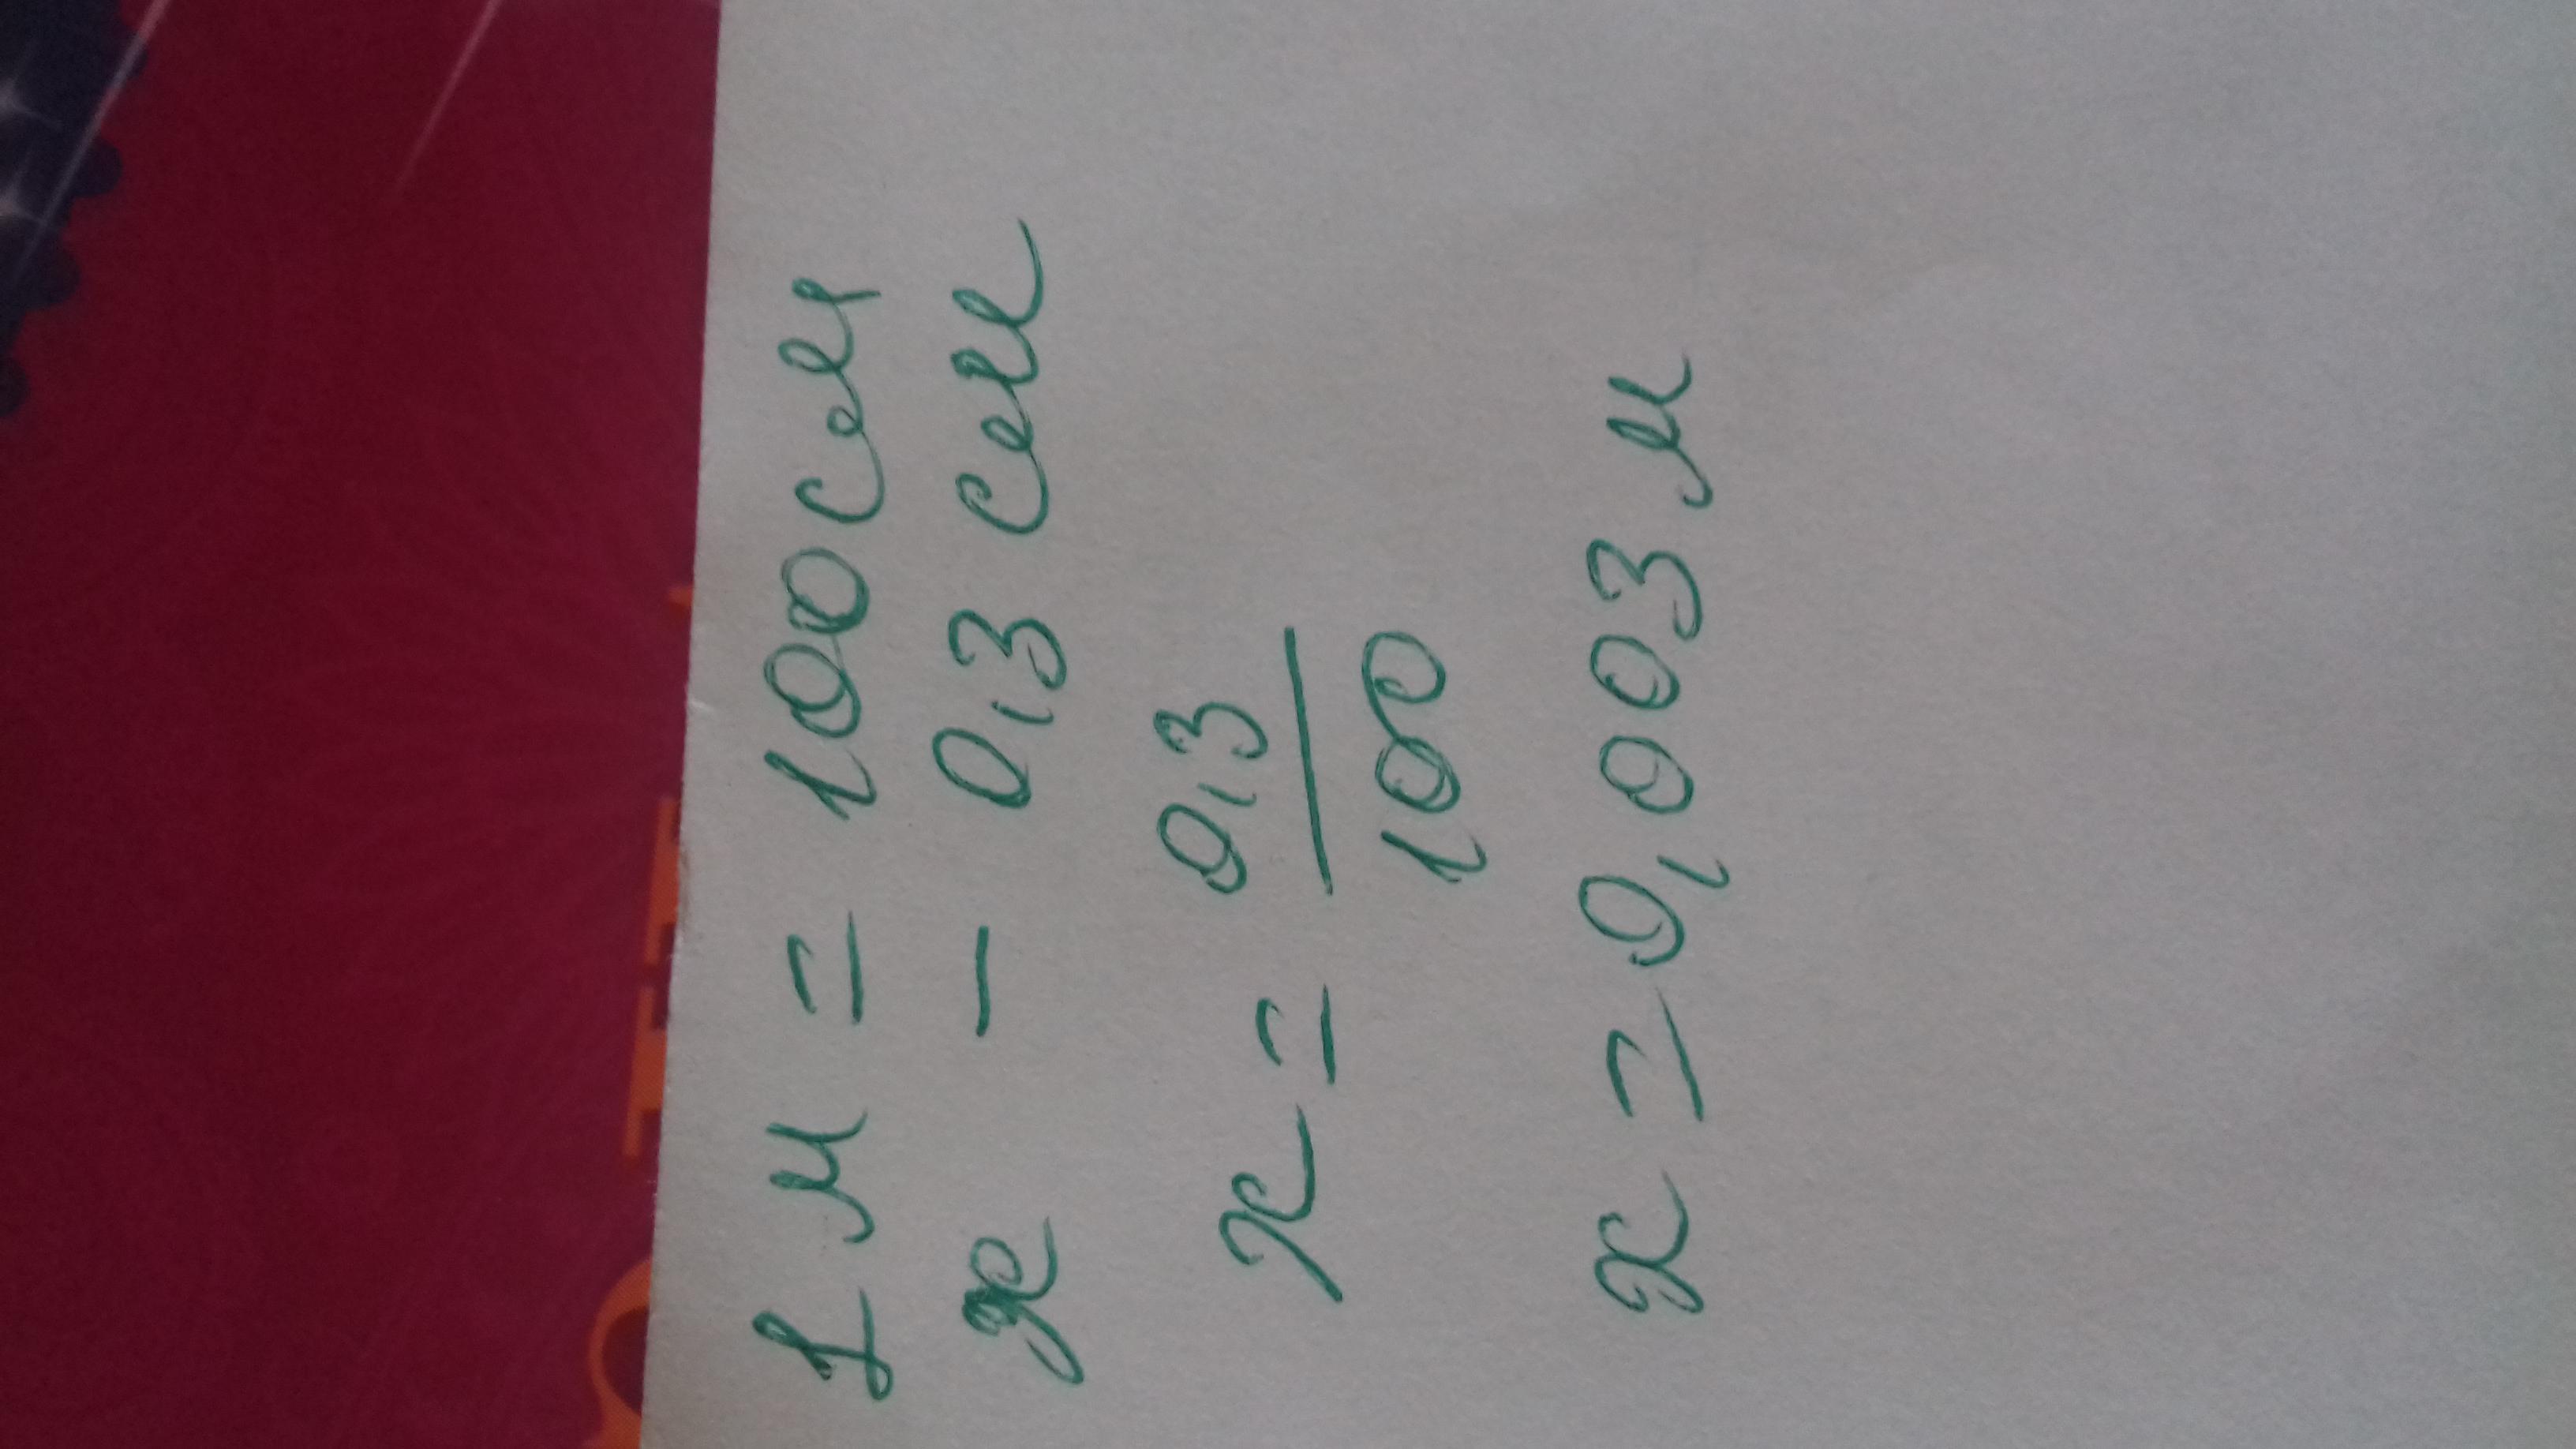 1 м = 100 см
x – 0,3 см
x = 0,3
100
x = 0,003 м